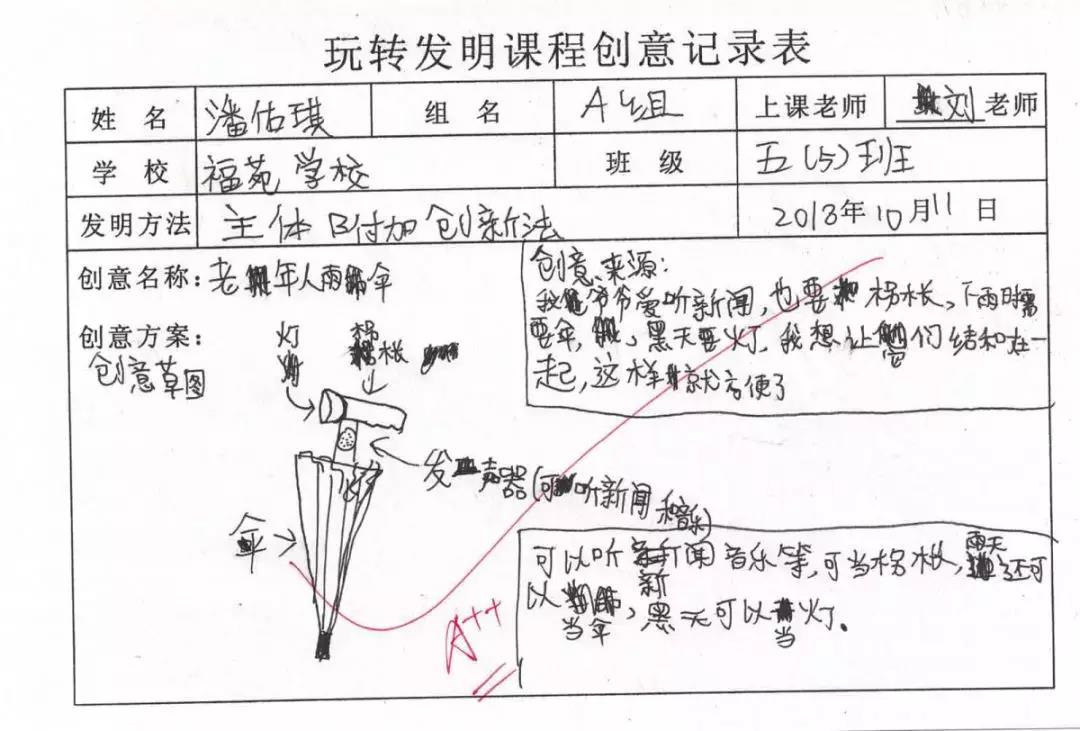 玩转发明课程创意记录表
姓名 潘佑琪 组名 A组 上课老师 刘老师
学校 福苑学校 班级 五(5)班
发明方法 主体附加创新法 2018年10月11日
创意名称:老年人雨伞
创意方案:
创意草图
创意来源:
我爷爷爱听新闻,也要拐杖,下雨时需
要伞,黑天要灯,我想让它们结和在一
起,这样就方便了
灯
拐杖
发声器(可听新闻和音乐)
伞
可以听新闻音乐等,可当拐杖,雨天还可
以当伞,黑天可以当灯.
A++